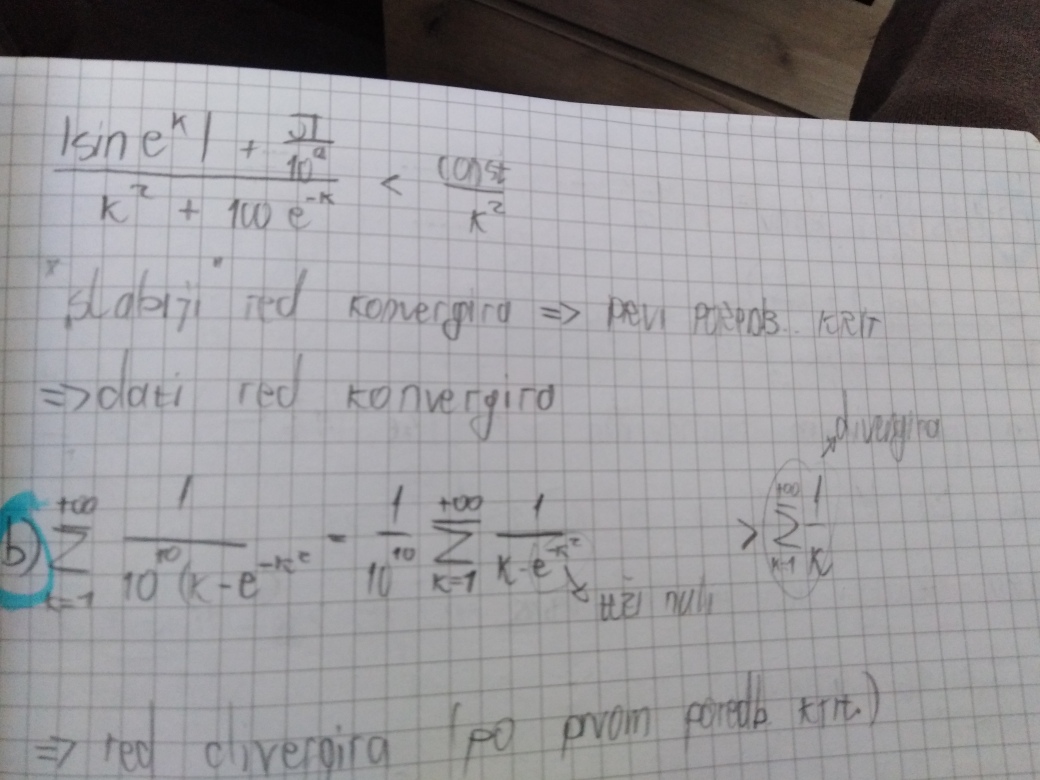 |sin e^k| + π/10^a / k² + 100 e^-k < const / k²
"slabiji" red konvergira => PRVI POREDB. KRIT
=> dati red konvergira
divergira
b) +∞ Σ k=1 1 / 10^10 (k - e^-k² = 1/10^10 +∞ Σ k=1 1 / k - e^-k² > +∞ Σ k=1 1/k
teži nuli
=> red divergira (po prvom poredb. krit.)